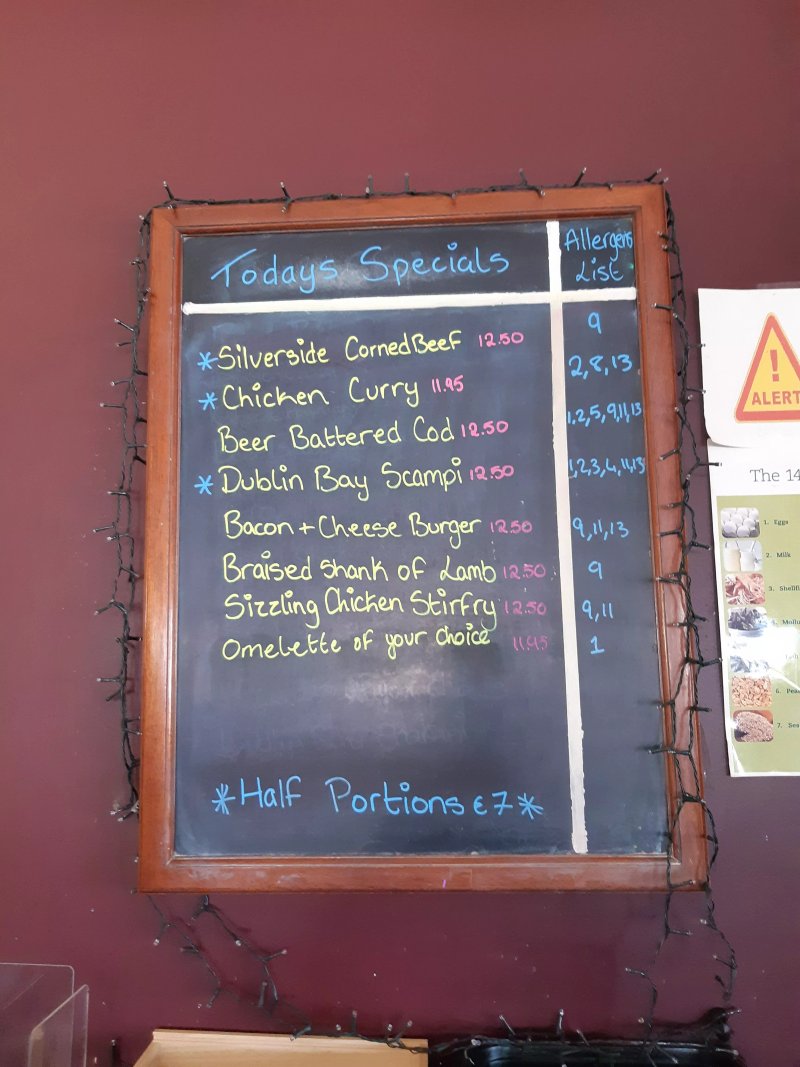 Todays Specials
Allergens
List
*Silverside Corned Beef 12.50 9
*Chicken Curry 11.95 2,8,13
Beer Battered Cod 12.50 1,2,5,9,11,13
*Dublin Bay Scampi 12.50 1,2,3,4,11,13
Bacon + Cheese Burger 12.50 9,11,13
Braised Shank of Lamb 12.50 9
Sizzling Chicken Stirfry 12.50 9,11
Omelette of your choice 11.95 1
*Half Portions €7*
ALERT
The 14
1. Eggs
2. Milk
3. Shellfi
4. Mollu
6. Pea
7. Ses